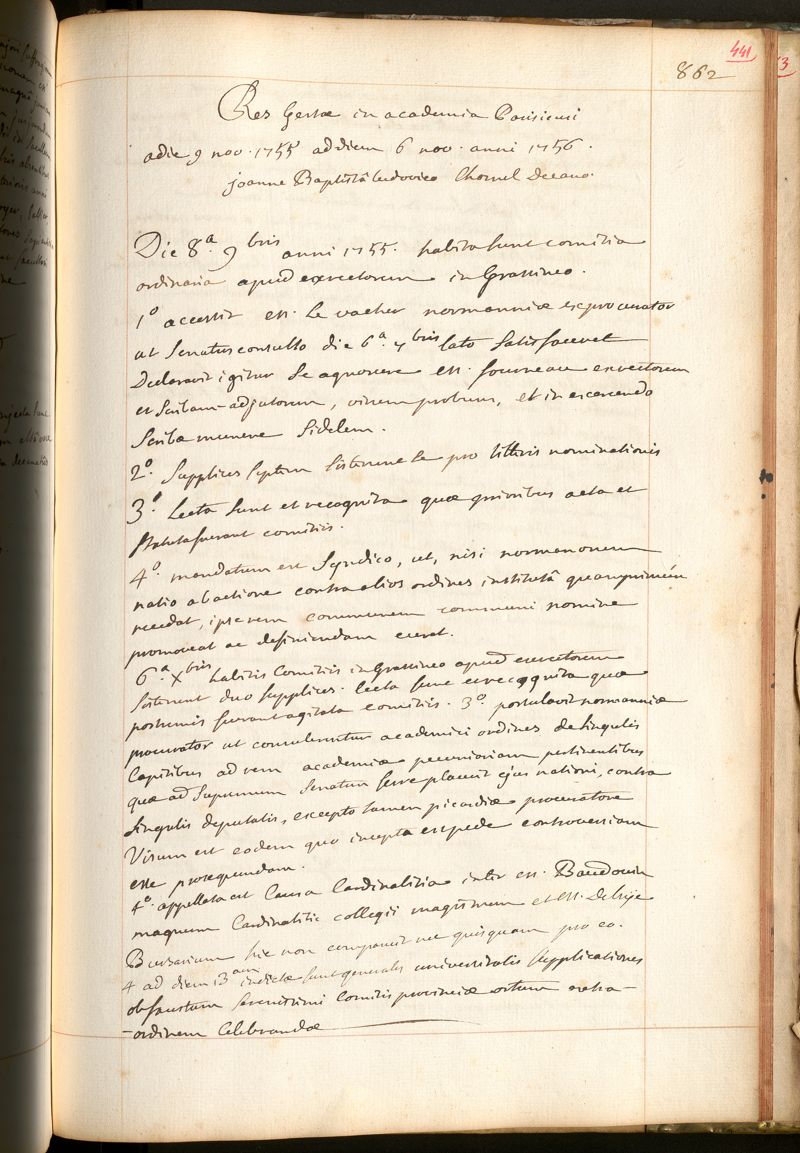 441
862
Res Gestae in academia Parisiensi
a die 9 nov. 1755 ad diem 6 nov. anni 1756.
joanne Baptistâ Ludovico Chomel Decano.
Die 8.ª 9bris anni 1755. habita sunt comitia
ordinaria apud exrectorem in Grassineo.
1º accessit M. Le vacher normanniae exprocurator
ut Senatusconsulto die 6.ª 7bris lato satisfaceret
Declaravit igitur se agnovere M. fourneau exrectorem
et scribam-adjutorem, virum probum, et in exercendo
scribae munere fidelem.
2º. Supplices septem sisterunt se pro litteris nominationis
3º. Lecta sunt et recognita quae prioribus acta et
statuta fuerant comitiis.
4º. mandatum est Syndico, ut, nisi normanorum
natio ab actione contra alios ordines institutâ quamprimùm
recedat, ipse rem communem communi nomine
promoveat ac definiendam curet.
6.ª Xbris habitis Comitiis in Grassineo apud exrectorem
sisterunt duo supplices. lecta sunt et recognita quae
postremis fuerant agitata comitiis. 3º. postulavit normanniae
procurator ut consulerentur academici ordines de singulis
Capitibus ad rem academiae pecuniariam pertinentibus
quae ad Supremum Senatum ferre placuit ejus nationi, contra
singulis deputatis, excepto tamen picardiae procuratore
Visum est eodem quo incepta est pede controversiam
esse prosequendam.
4º. appellata est Causa Cardinalitia inter M. Baudouin
magnum Cardinalitii collegii magistrum et M. de
Bursarium hic non comparuit nec quisquam pro eo.
4 ad diem 13am indictae sunt generales universitatis supplicationes
ob faustum serenissimi Comitis provinciae ortum extra-
-ordinem Celebrandae